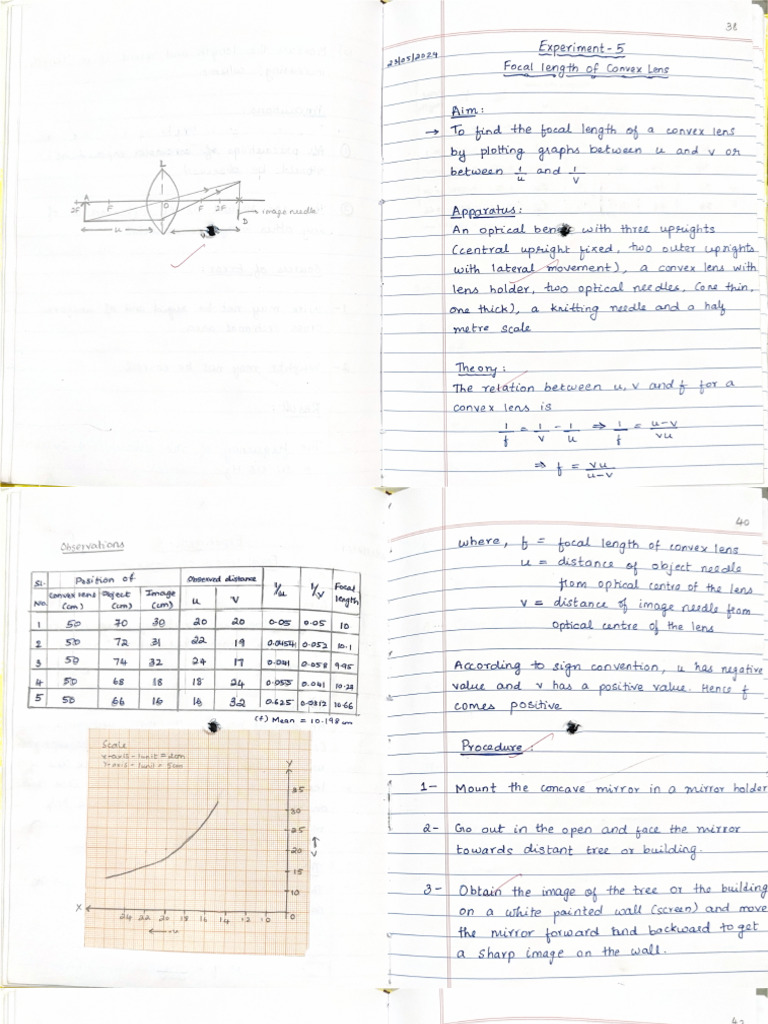 38
23/05/2024
Experiment - 5
Focal length of Convex Lens
Aim :
→ To find the focal length of a convex lens
by plotting graphs between u and v or
between 1/u and 1/v
Apparatus :
An optical bench with three uprights
(central upright fixed, two outer uprights
with lateral movement), a convex lens with
lens holder, two optical needles, (one thin,
one thick), a knitting needle and a half
metre scale
Theory :
The relation between u, v and f for a
convex lens is
1/f = 1/v - 1/u ⇒ 1/f = u-v/vu
⇒ f = vu/u-v
L
A
2F F O F 2F
image needle
D
u
Observations
Sl. No. Position of Observed distance 1/u 1/v Focal length
Convex lens (cm) Object (cm) Image (cm) u v
1 50 70 30 20 20 0.05 0.05 10
2 50 72 31 22 19 0.0454 0.052 10.1
3 50 74 32 24 17 0.041 0.058 9.95
4 50 68 18 18 24 0.055 0.041 10.28
5 50 66 16 16 32 0.625 0.0312 10.66
(f) Mean = 10.198 cm
Scale
x-axis - 1unit = 2cm
y-axis - 1unit = 5cm
Y
35
30
25
20
15
10
0
v →
X 24 22 20 18 16 14 12 10 0
← u
40
where, f = focal length of convex lens
u = distance of object needle
from optical centre of the lens
v = distance of image needle from
optical centre of the lens
According to sign convention, u has negative
value and v has a positive value. Hence f
comes positive
Procedure :
1- Mount the concave mirror in a mirror holder
2- Go out in the open and face the mirror
towards distant tree or building.
3- Obtain the image of the tree or the building
on a white painted wall (screen) and move
the mirror forward and backward to get
a sharp image on the wall.
42